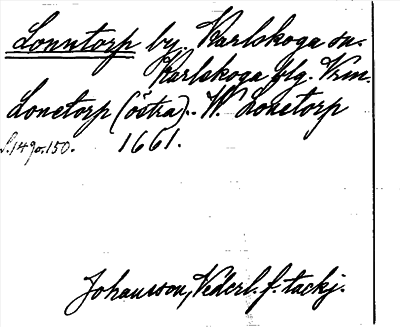 Lonntorp by. Karlskoga sn.
Karlskoga flg. Vrm.
Lonetorp (östra).. W. Lonetorp
s. 149 o. 150. 1661.
Johansson, Vederl. f. tackj.